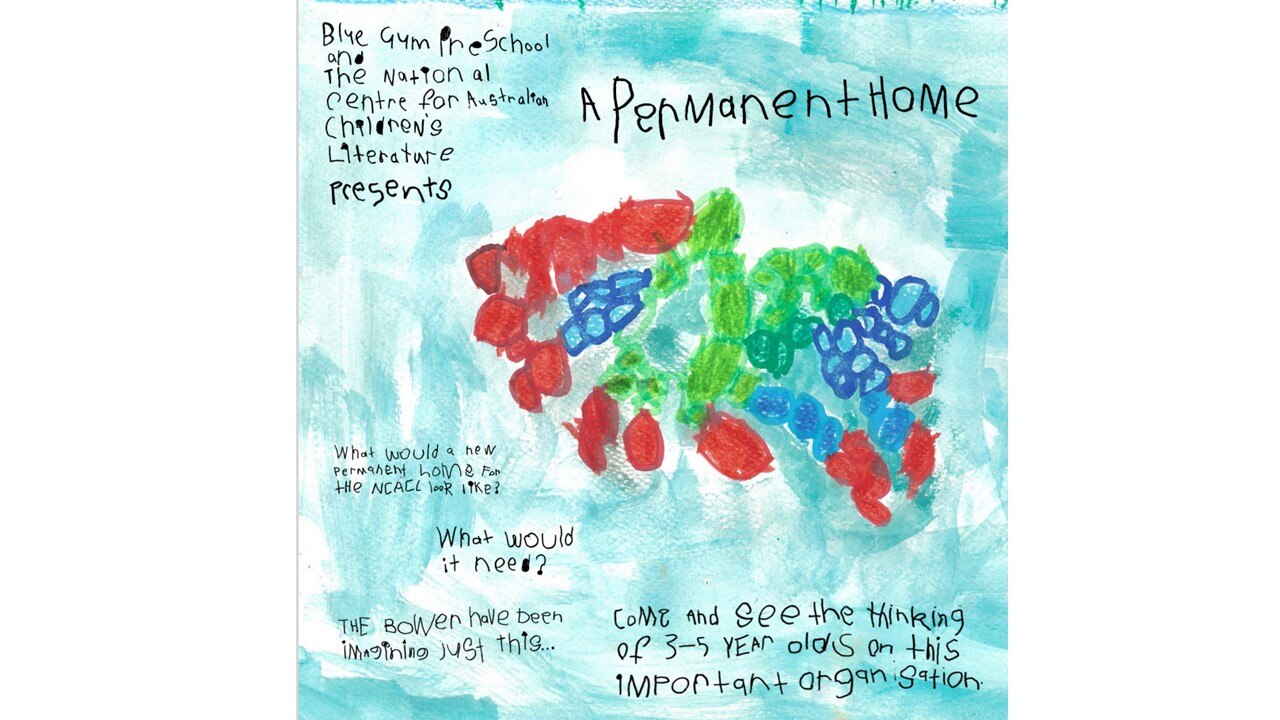 Blue Gym PreSchool
and
The National
Centre for Australian
Children's
Literature
presents
A Permanent HOME
What would a new
permanent home For
tHe NCACL look like?
What would
it need?
THE BOWer have been
imagining just this...
Come And see the thinking
of 3-5 YEAR olds on this
important organisation.